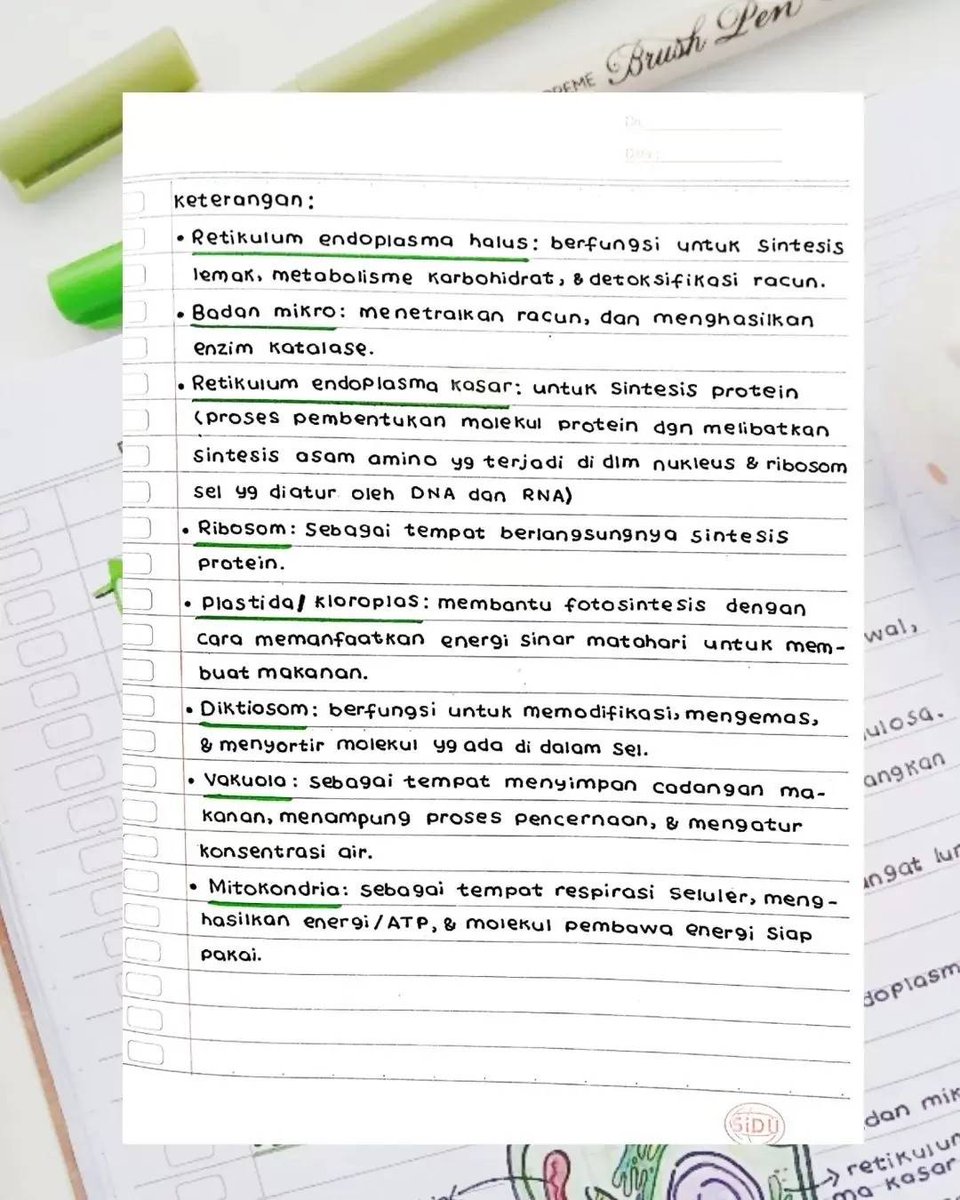 Brush Pen
No
Date:
Keterangan:
• Retikulum endoplasma halus: berfungsi untuk sintesis
lemak, metabolisme karbohidrat, & detoksifikasi racun.
• Badan mikro: menetralkan racun, dan menghasilkan
enzim katalase.
• Retikulum endoplasma kasar: untuk sintesis protein
(proses pembentukan molekul protein dgn melibatkan
sintesis asam amino yg terjadi di dlm nukleus & ribosom
sel yg diatur oleh DNA dan RNA)
• Ribosom: sebagai tempat berlangsungnya sintesis
protein.
• Plastida/ kloroplas: membantu fotosintesis dengan
cara memanfaatkan energi sinar matahari untuk mem-
buat makanan.
• Diktiosom: berfungsi untuk memodifikasi, mengemas,
& menyortir molekul yg ada di dalam sel.
• Vakuola: sebagai tempat menyimpan cadangan ma-
kanan, menampung proses pencernaan, & mengatur
konsentrasi air.
• Mitokondria: sebagai tempat respirasi seluler, meng-
hasilkan energi/ATP, & molekul pembawa energi siap
pakai.
SiDU
retikulum
kasar